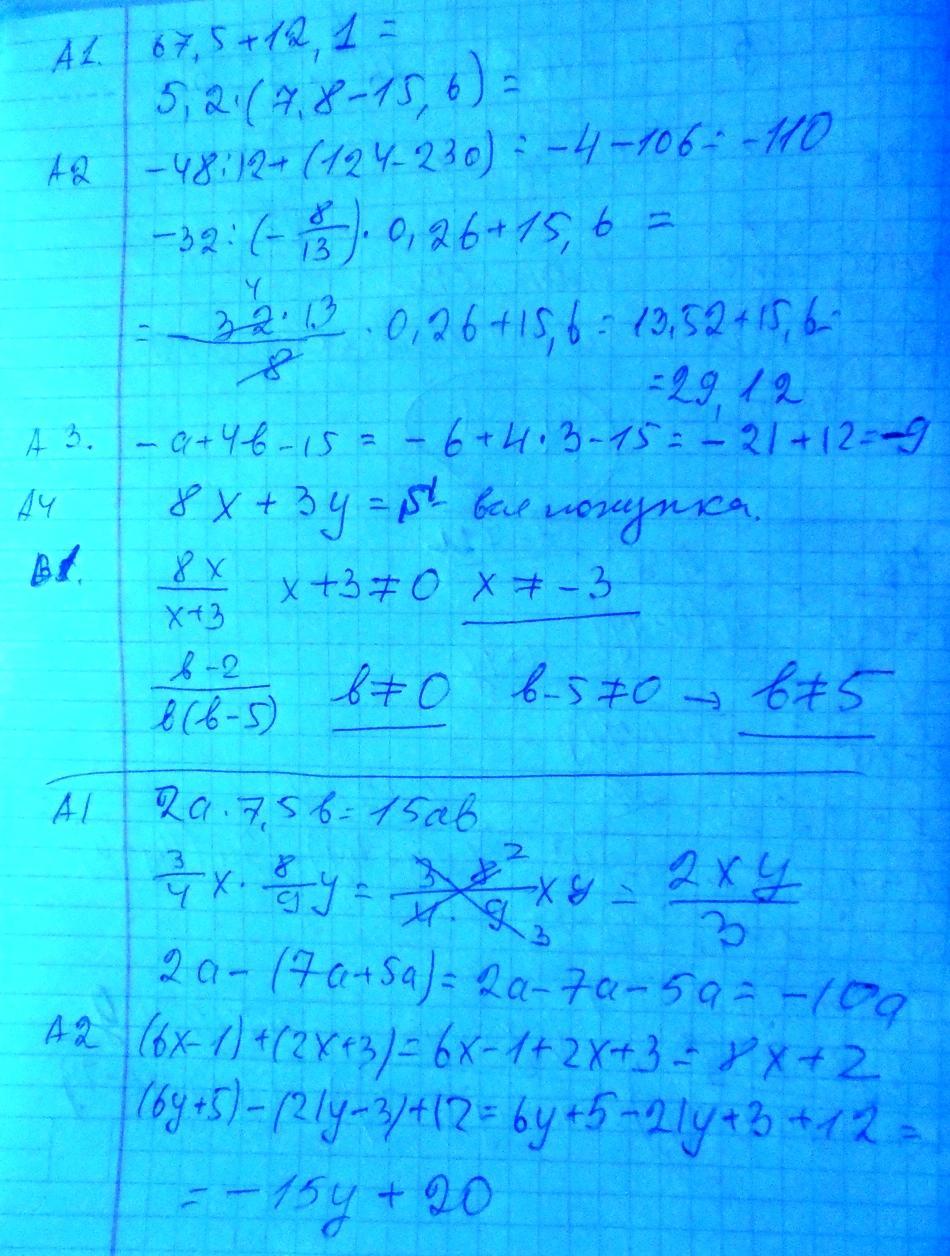 А1. 67,5+12,1=
5,2·(7,8-15,6)=
А2 -48:12+(124-230)=-4-106=-110
-32:(-8/13)·0,26+15,6=
4
=32·13/8·0,26+15,6=13,52+15,6=
=29,12
А3. -a+4b-15=-6+4·3-15=-21+12=-9
А4 8x+3y= вся покупка.
В1. 8x/x+3 x+3≠0 x≠-3
b-2/b(b-5) b≠0 b-5≠0→b≠5
А1 2a·7,5b=15ab
3/4x·8/9y=3·8 2/4·9 3 xy=2xy/3
2a-(7a+5a)=2a-7a-5a=-10a
А2 (6x-1)+(2x+3)=6x-1+2x+3=8x+2
(6y+5)-(21y-3)+12=6y+5-21y+3+12=
=-15y+20